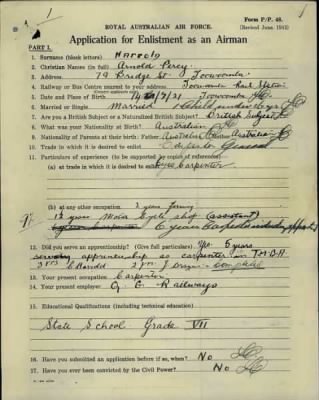 Form P/P. 48.
(Revised June, 1943)
ROYAL AUSTRALIAN AIR FORCE.
Application for Enlistment as an Airman
PART 1.
1. Surname (block letters) Harrold
2. Christian Names (in full) Arnold Percy
3. Address 79 Bridge St Toowoomba
4. Railway or Bus Centre nearest to your address Toowoomba Rail Station
5. Date and Place of Birth 2/21 Toowoomba
6. Married or Single Married 1 child under
7. Are you a British Subject or a Naturalized British Subject? British Subject
8. What was your Nationality at Birth? Australian
9. Nationality of Parents at their birth: Father Australian Mother Australian
10. Trade in which it is desired to enlist General
11. Particulars of experience (to be supported by copies of references)
(a) at trade in which it is desired to enlist Carpenter
(b) at any other occupation 2 years
1½ year Motor Cycle shop (assistant)
6 years Carpenter
12. Did you serve an apprenticeship? (Give full particulars). Yes 5 years
apprenticeship as carpenter in T.M.B.A
Harrold Completed
13. Your present occupation Carpenter
14. Your present employer Railways
15. Educational Qualifications (including technical education)
State School Grade VII
16. Have you submitted an application before if so, when? No
17. Have you ever been convicted by the Civil Power? No